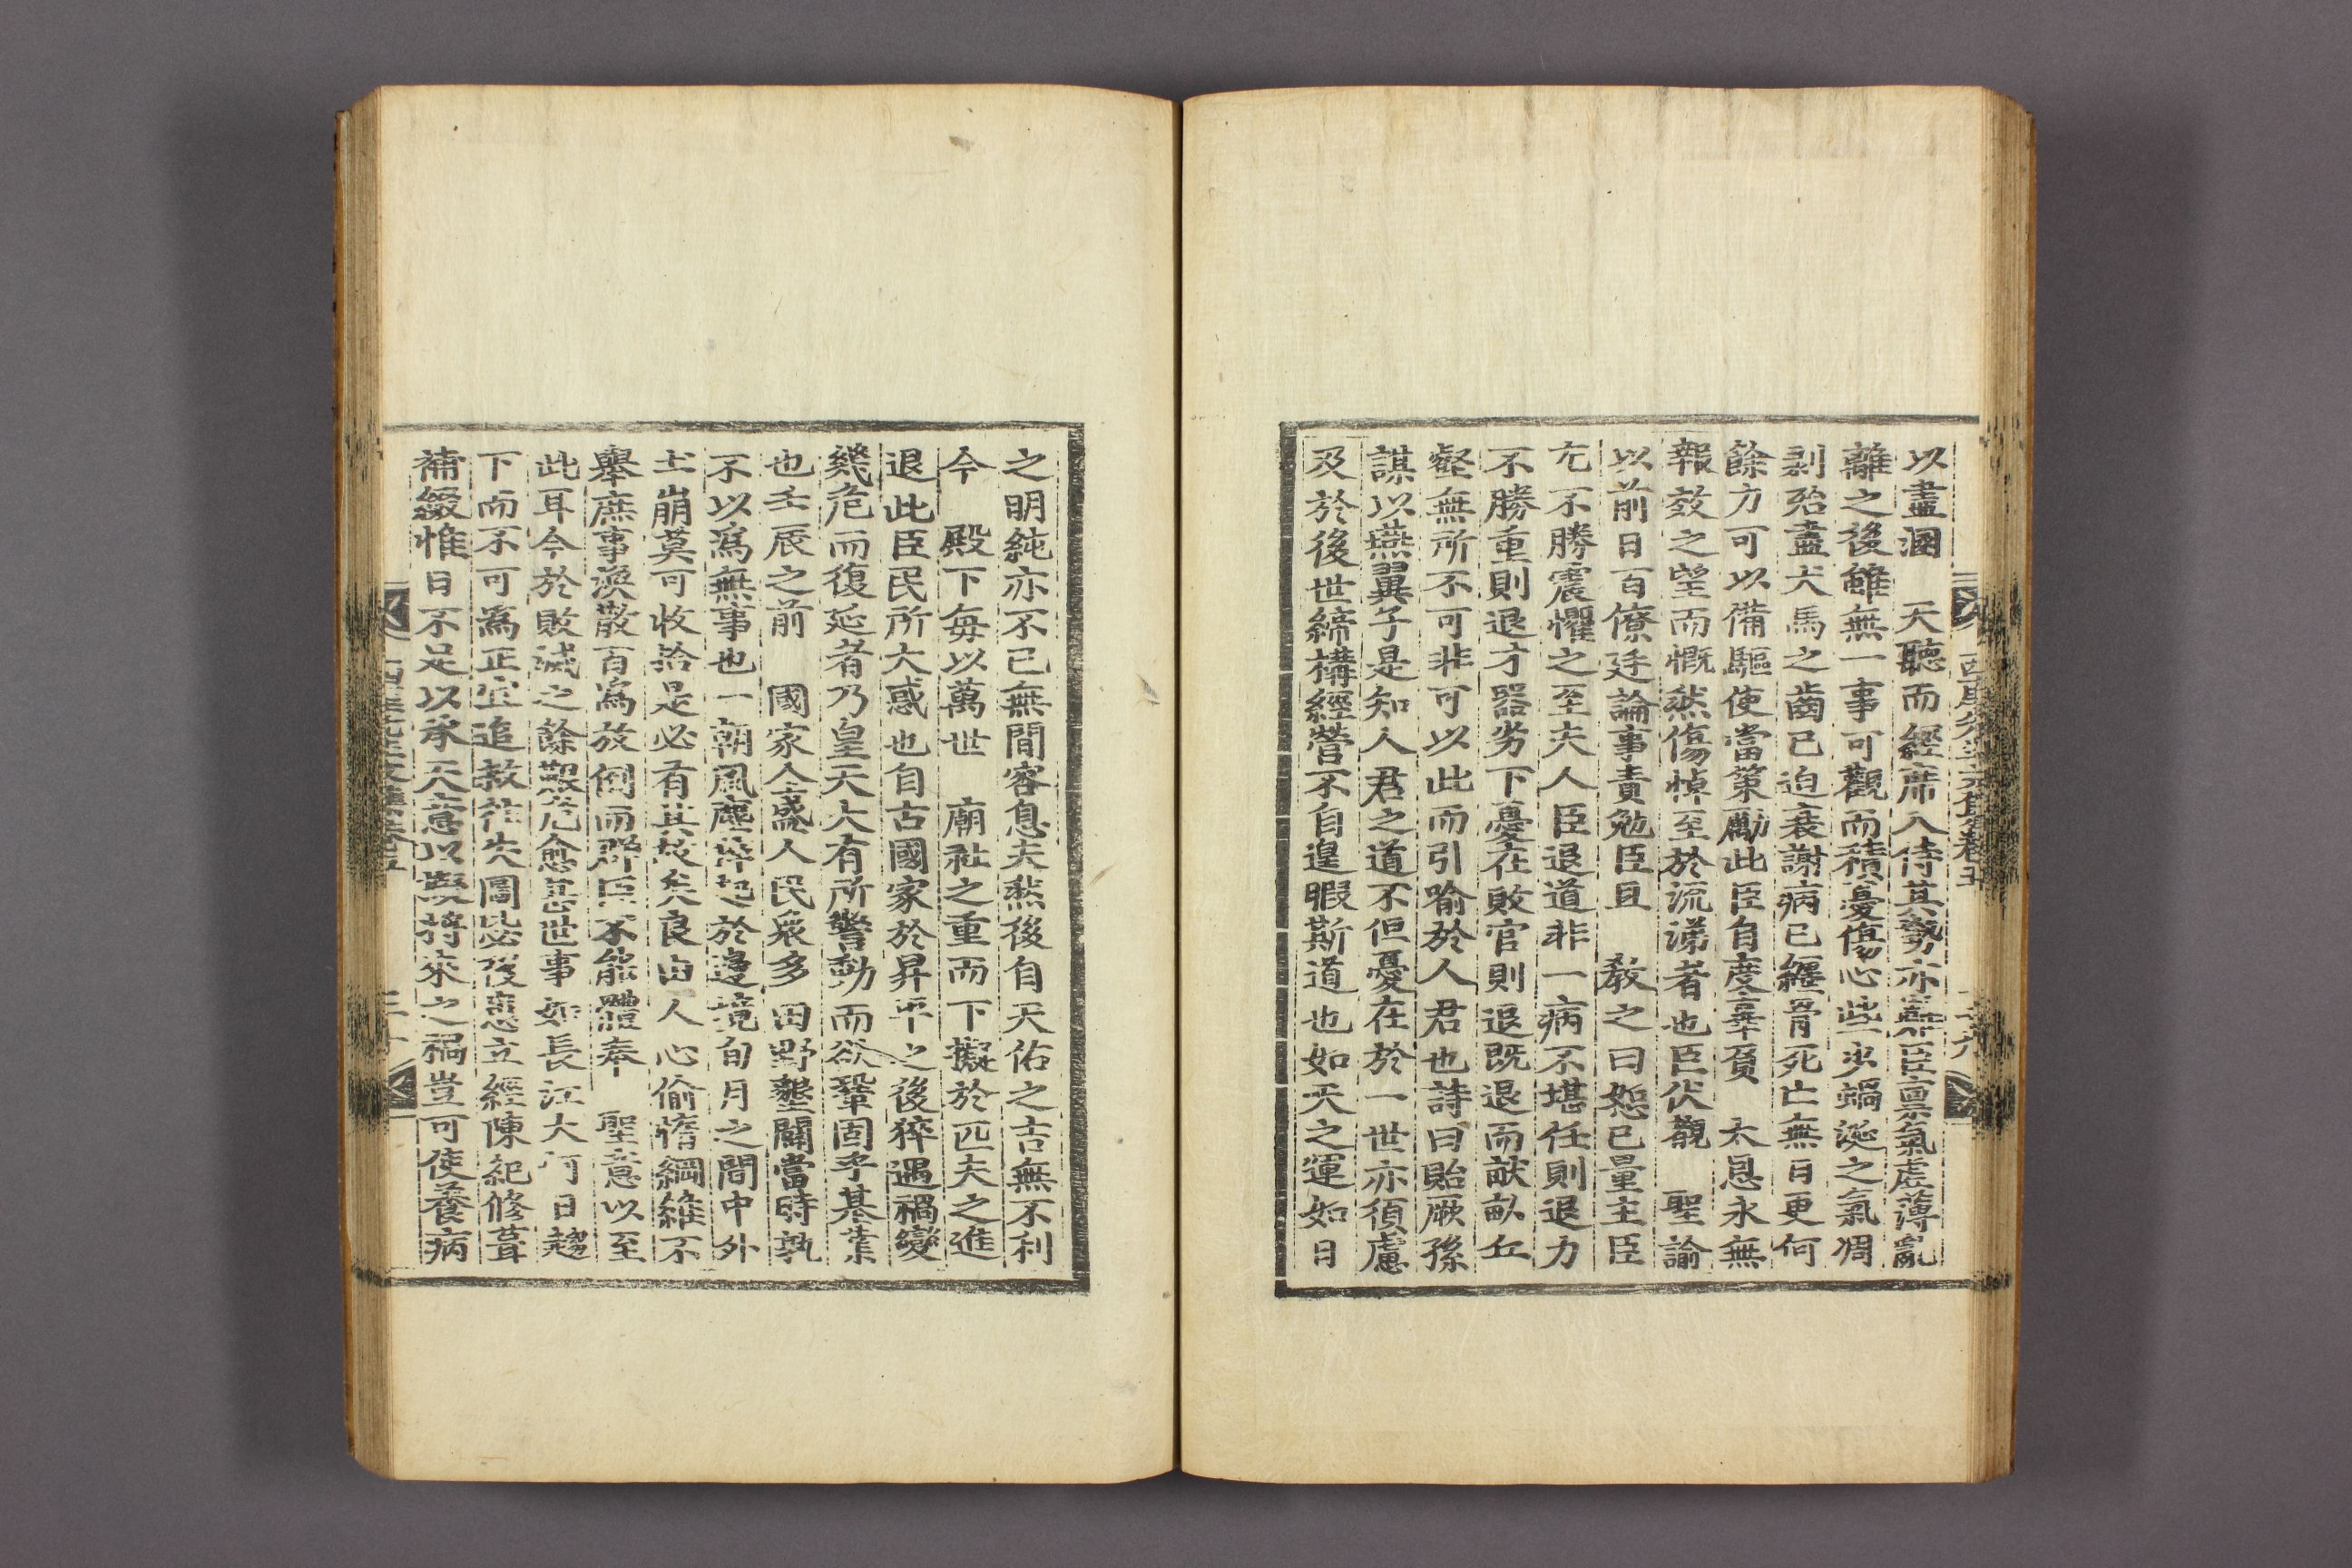 以盡溷　天聽而經席入侍其勢亦窮臣稟氣虛薄亂
離之後雖無一事可觀而積憂傷心些少蝸涎之氣凋
剥殆盡犬馬之齒已迫衰謝病已纏骨死亡無日更何
餘力可以備驅使當策勵此臣自度辜負　太恩永無
報效之望而慨然傷悼至於流涕者也臣伏覩　聖諭
以前日百僚廷論事責勉臣且　教之曰恕已量主臣
尤不勝震懼之至夫人臣退道非一病不堪任則退力
不勝重則退才器劣下憂在敗官則退既退而畎畝丘
壑無所不可非可以此而引喻於人君也詩曰貽厥孫
謀以燕翼子是知人君之道不但憂在於一世亦須慮
及於後世締構經營不自遑暇斯道也如天之運如日
之明純亦不已無間容息夫然後自天佑之吉無不利
今　殿下每以萬世　廟社之重而下擬於匹夫之進
退此臣民所大惑也自古國家於昇平之後猝遇禍變
幾危而復延者乃皇天大有所警動而欲鞏固乎基業
也壬辰之前　國家全盛人民衆多田野墾闢當時孰
不以爲無事也一朝風塵芥起於邊境旬月之間中外
土崩莫可收拾是必有其故矣良由人心偷惰綱維不
舉庶事渙散百爲放倒而群臣不能體奉　聖意以至
此耳今於敗滅之餘艱危愈甚世事如長江大河日趨
下而不可爲正宜追救徃失圖毖後患立經陳紀修葺
補綴惟日不足以承天意以弭將來之禍豈可使養病